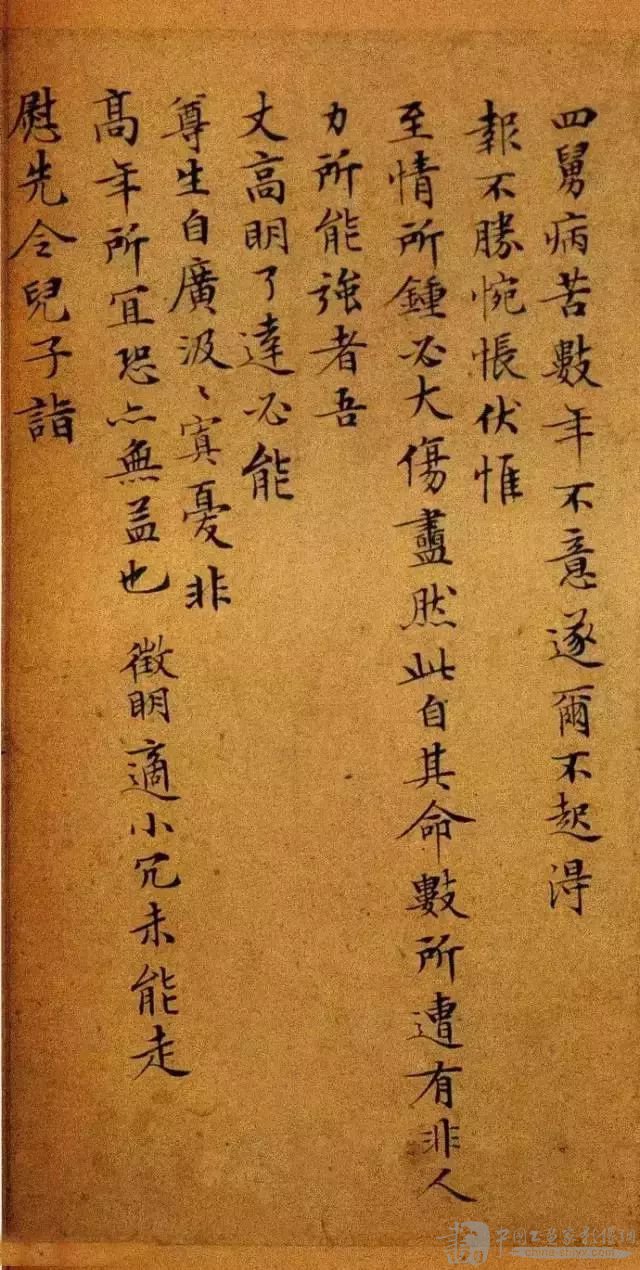 四舅病苦數年不意遂爾不起得
報不勝惋悵伏惟
至情所鍾必大傷衋然此自其命數所遭有非人
力所能強者吾
丈高明了達必能
尊生自廣汲〻寘憂非
高年所宜恐亦無益也 徵明適小冗未能走
慰先令兒子詣
中国书画家影像网
china-shyx.com